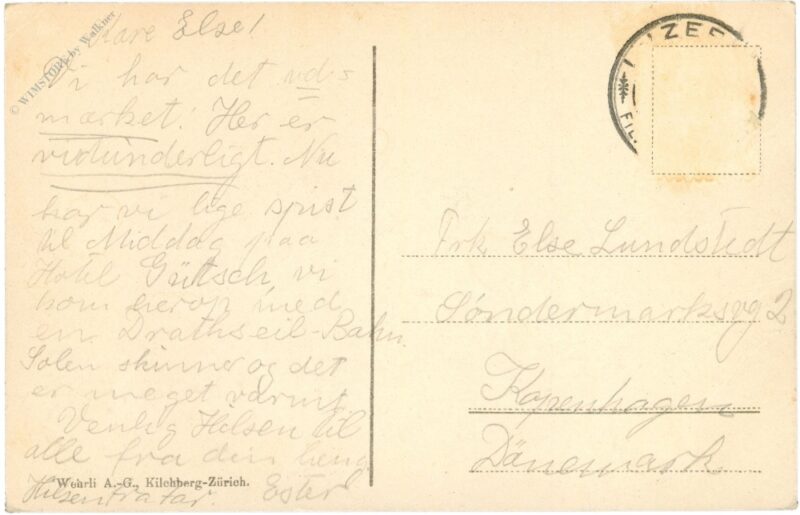 Kære Else!
Vi har det uds
mærket! Her er
vidunderligt. Nu
har vi lige spist
til Middag paa
Hotel Gütsch vi
kom herop med
en Drathseil-Bahn.
Solen skinner og det
er meget varmt
Venlig Hilsen til
alle fra din
Hilsen fra far. Ester
Wehrli A.-G., Kilchberg-Zürich.
LUZER
FIL.
Frk Else Lundstedt
Søndermarksvg 2
Kopenhagen
Dänemark
© WIMSTORE by Walkner